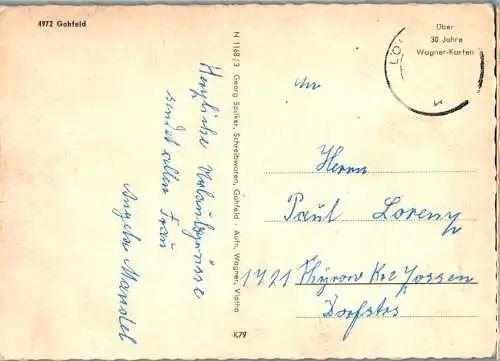 4972 Gohfeld
Über
30 Jahre
Wagner-Karten
LÖ
An
Herrn
Paul Lorenz
1721 Thyrow Krs Zossen
Dorfstr
Herzliche Urlaubsgrüsse
sendet allen Frau
Angela Mandel
N 1168/3 Georg Spilker, Schreibwaren, Gohfeld - Aufn. Wagner, Vlotho
K79